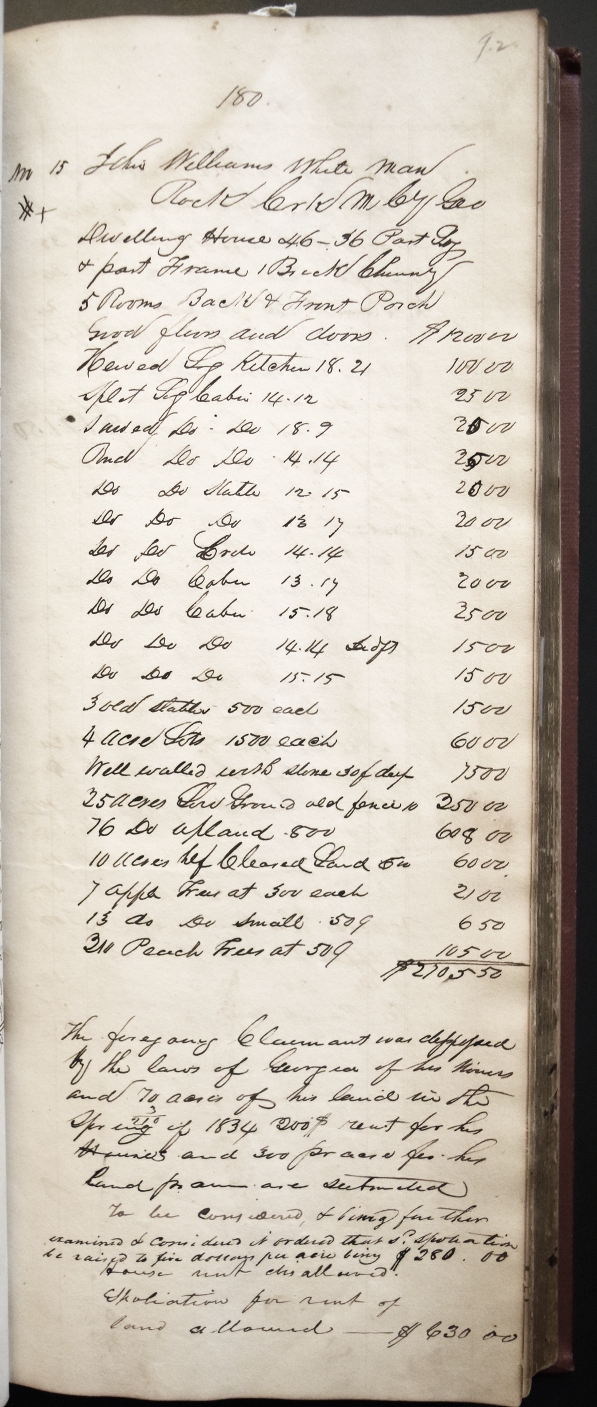 92
180.
No 15 John Williams White man
Rock Crk M Cy Geo
#+
Dwelling House 46-36 Part Log
& part Frame 1 Brick Chimny
5 Rooms Back & Front Porch
Good floors and doors. $1200 00
Hewed Log Kitchen 18.21 100 00
split Log Cabin 14.12 25 00
Sawed Do Do 18.9 00
Rnd Do Do 14.14 25 00
Do Do Stable 12 15 20 00
Do Do Do 13 17 20 00
Do Do Crib 14.14 15 00
Do Do Cabin 13.17 20 00
Do Do Cabin 15.18 25 00
Do Do Do 14.14 15 00
Do Do Do 15.15 15 00
3 old Stables 500 each 15 00
4 acre Lots 1500 each 60 00
Well walled with stone 30 f deep 75 00
25 acres Low Ground old fence 10 250 00
76 Do upland 800 608 00
10 acres hlf Cleared Land 60 00
7 apple Trees at 300 each 21 00
13 do Do small 50¢ 6 50
210 Peach Trees at 50¢ 105 00
$2705 50
The foregoing Claimant was
by the laws of Georgia of his
and 70 acres of his land in the
Spring of 1834 200$ rent for his
Houses and 300 pr acre for his
land pr anm are submitted
To be considered, & being further
examined & considered it ordered that sd spoliation
be raised to five dollars per acre being $280.00
House rent disallowed.
Spoliation for rent of
land allowed — $630 00